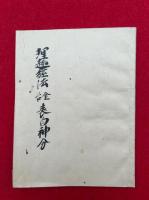 理趣経法 表白神分